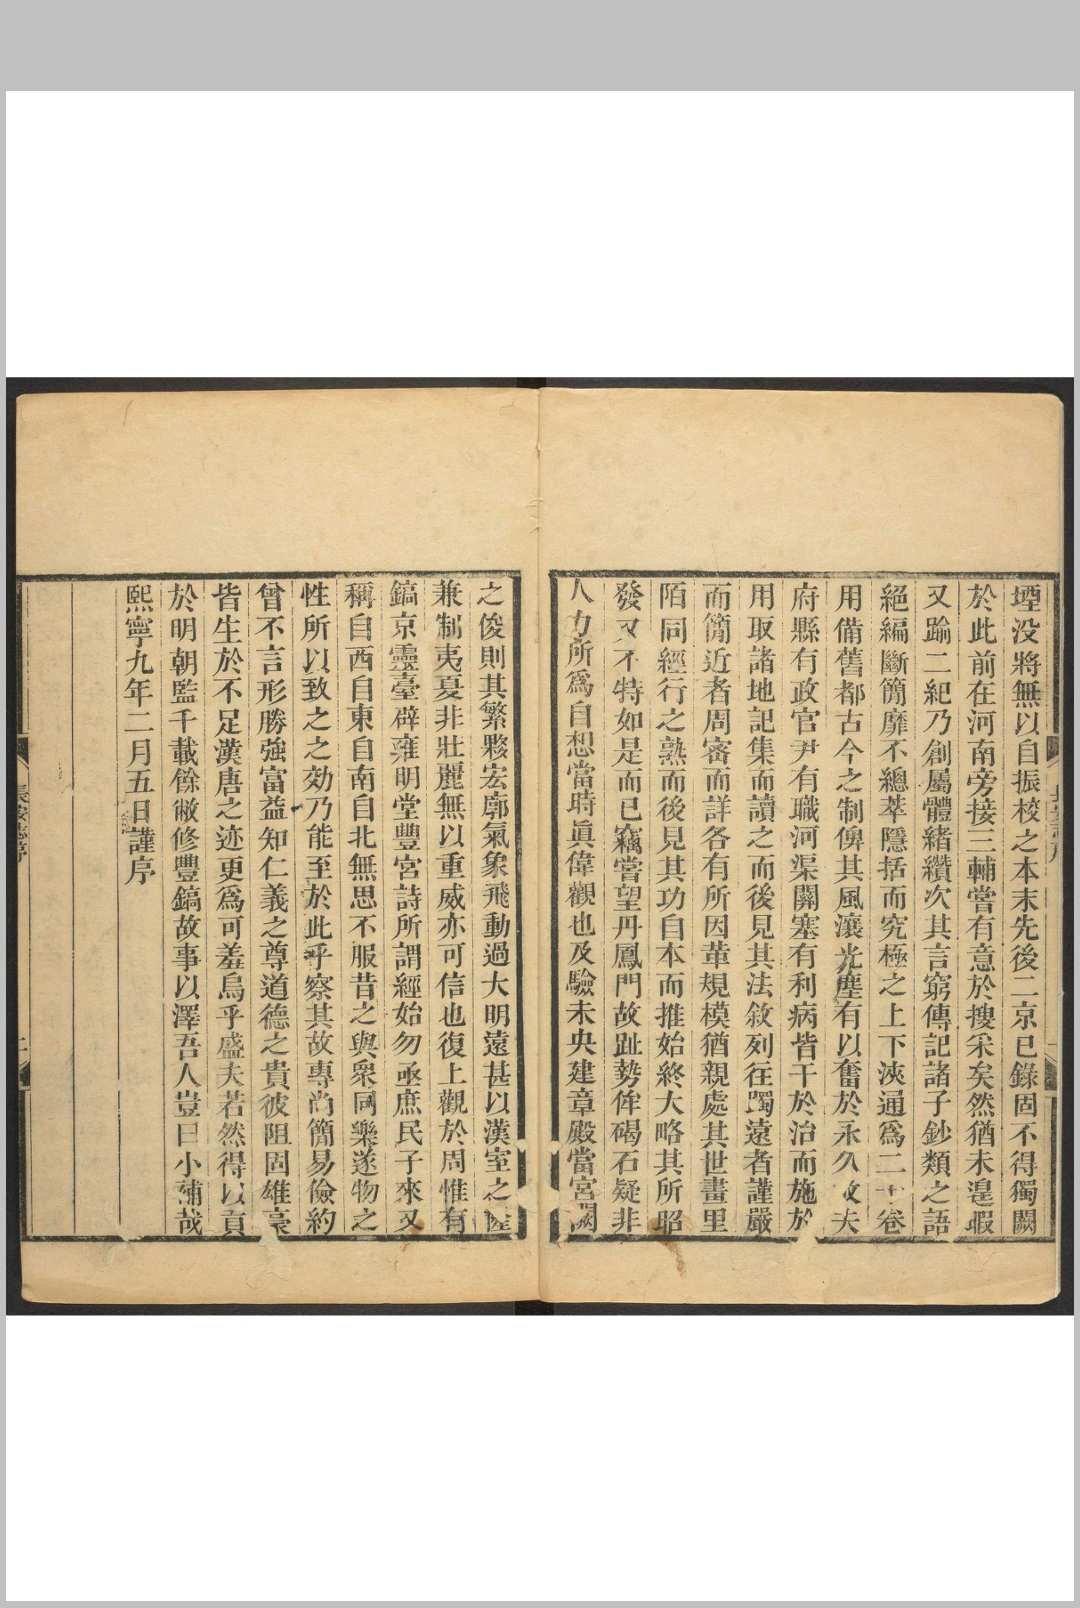 堙没將無以自振校之本末先後二京已錄固不得獨闕
於此前在河南旁接三輔嘗有意於搜采矣然猶未遑暇
又踰二紀乃創屬體緒纘次其言窮傳記諸子鈔類之語
絕編斷簡靡不總萃隱括而究極之上下浹通爲二十卷
用備舊都古今之制俾其風瀼光塵有以奮於永久故夫
府縣有政官尹有職河渠關塞有利病皆干於治而施於
用取諸地記集而讀之而後見其法敘列往躅遠者謹嚴
而簡近者周審而詳各有所因革規模猶親處其世畫里
陌同經行之熟而後見其功自本而推始終大略其所昭
發又不特如是而已竊嘗望丹鳳門故趾勢侔碣石疑非
人力所爲自想當時眞偉觀也及驗未央建章殿當宮闕
之俊則其繁夥宏廓氣象飛動過大明遠甚以漢室之隆
兼制夷夏非壯麗無以重威亦可信也復上觀於周惟有
鎬京靈臺辟雍明堂豐宮詩所謂經始勿亟庶民子來又
稱自西自東自南自北無思不服昔之與衆同樂遂物之
性所以致之之効乃能至於此乎察其故專尚簡易儉約
曾不言形勝強富益知仁義之尊道德之貴彼阻固雄豪
皆生於不足漢唐之迹更爲可羞烏乎盛夫若然得以貢
於明朝監千載餘敝修豐鎬故事以澤吾人豈曰小補哉
熙寧九年二月五日謹序
長安志序